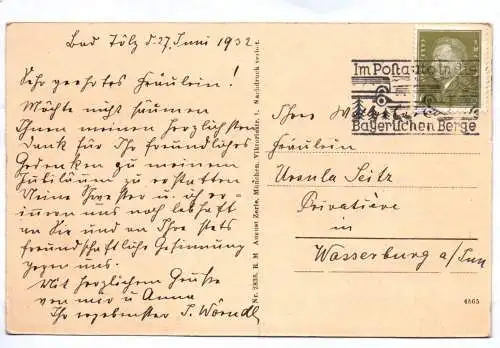 Bad Tölz d. 27. Juni 1932
Sehr geehrtes Fräulein!
Möchte nicht säumen
Ihnen meinen herzlichsten
Dank für Ihr freundliches
Gedenken zu meinem
Jubiläum zu erstatten
Meine Schwester u. ich er-
inneren uns noch lebhaft
an Sie und an Ihre stets
freundschaftliche Gesinnung
gegen uns.
Mit herzlichem Gruße
von mir u. Anna
Ihr ergebenster J. Wörndl
Nr. 2835. R. M August Zerle, München, Viktoriastr. 1. Nachdruck verbot.
Im Postauto in die
Bayerischen Berge
Ihre
Fräulein
Ursula Seitz
Privatière
in
Wasserburg a/Inn
4865